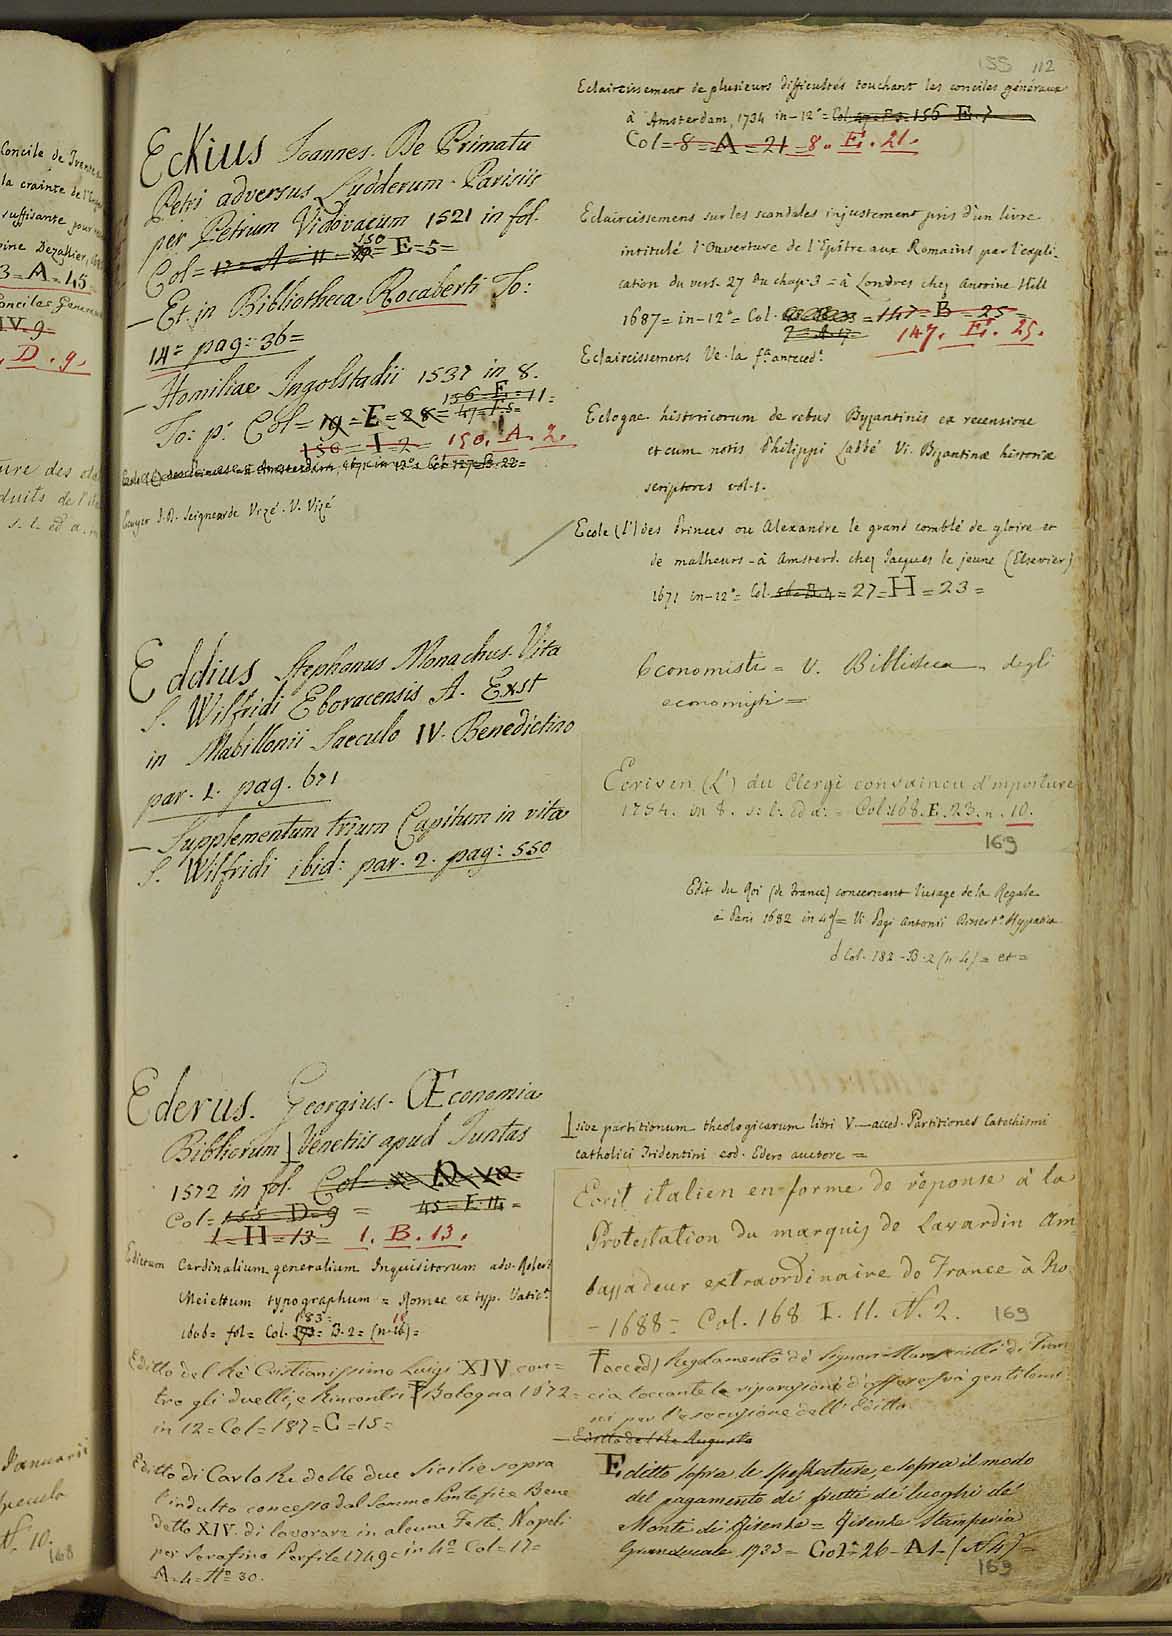 Concile de Trente
la crainte de l'
suffisante pour
Dezallier,
3 = A = 45
Conciles Generaux
IV. 9
. D . 9 .
ture des
duits de l'
s. l. ed a.
Januarii
N. 10.
168
155 112
Eckius Joannes. De Primatu
Petri adversus Ludderum - Parisiis
per Petrum Vidovaeum 1521 in fol.
Col = 17 = A = 11 = 150 = E = 5 =
— Et in Bibliotheca Rocaberti To:
14 = pag: 36 =
— Homiliae Ingolstadii 1537 in 8.
156 = E = 11 =
To: p: Col = 19 = E = 28 = 47 = F. 5 =
150 = I = 2 = 150. A. 2.
Ecole (l') des Princes = à Amsterdam, 1671 in 12° = Col. 127 = B. 22 =
Ecuyer J. D. Seigneur de Vizé. V. Vizé
Eddius Stephanus Monachus. Vita
S. Wilfridi Eboracensis A. Exst
in Mabillonii Saeculo IV. Benedictino
par. 1. pag. 671
— Supplementum trium Capitum in vita
S. Wilfridi ibid: par. 2. pag: 550
Ederus. Georgius. Œconomia
Bibliorum Venetiis apud Juntas
1572 in fol. Col
Col = 155 = D = 9 = 45 = F. 14 =
1 = H = 13 = 1. B. 13.
Edictum Cardinalium generalium Inquisitorum adv. Robert
Meiettum typographum = Romae ex typ. Vatic.
183 =
1606 = fol = Col. 193 = B. 2 = (n. 16) =
Editto del Rè Cristianissimo Luigi XIV con =
tro gli duelli, e Rincontri Bologna 1672 =
in 12 = Col = 187 = C = 15 =
Editto di Carlo Re delle due Sicilie sopra
l'indulto concesso dal Sommo Pontefice Bene
detto XIV. di lavorare in alcune Feste. Napoli
per Serafino Porsile 1749 = in 4° Col = 17 =
A = 4 = N° 30.
Eclaircissement de plusieurs difficultés touchant les conciles généraux
à Amsterdam, 1734 in - 12° = Col. 47 = F. 3 = 156 E. 7
Col = 8 = A = 21 = 8. E. 21.
Eclaircissemens sur les scandales injustement pris d'un livre
intitulé l'Ouverture de l'Epitre aux Romains par l'expli-
cation du vers. 27 du chap. 3 = à Londres chez Antoine Hill
1687 = in - 12° = Col. = 147 = B = 25 =
7 = A = 17 = 147. E. 25.
Eclaircissemens Ve. la f.e anteced.e
Eclogae historicorum de rebus Byzantinis ex recensione
et cum notis Philippi Labbé Vi. Bizantinae historiae
scriptores vol. 1.
Ecole (l') des Princes ou Alexandre le grand comblé de gloire et
de malheurs - à Amsterd. chez Jacques le jeune (Elsevier)
1671 in - 12° = Col. 56 = B. 4 = 27 = H = 23 =
Economisti = V. Biblioteca degli
economisti =
Ecriven (L') du Clergé convaincu d'imposture
1754. in 8. s: l: ed a: = Col: 168. E. 23. n. 10.
169
Edit du Roi (de France) concernant l'usage de la Regale
à Paris 1682 in 4° = Vi Pagi Antonii Dissert.o Hypatica
Col. 182 - B. 2 (n. 4) = et =
sive partitionum theologicarum libri V — acced. Partitiones Catechismi
catholici Tridentini eod. Edero auctore =
Ecrit italien en forme de réponse à la
Protestation du marquis de Lavardin Am-
bassadeur extraordinaire de France à Ro.
- 1688 = Col. 168 I. 11. N. 2. 169
(acced) Regolamento de Signori Marescialli di Fran
cia toccante le riparazioni d'offese fra gentiluomi
ni per l'esecuzione dell'Editto.
— Editto del Re Augusto
Editto sopra le Spogliature, e sopra il modo
del pagamento dé frutti dé luoghi dé
Monti di Firenze = Firenze Stamperia
Granducale 1733 = Col = 26 - A 1 - (N 4) =
169